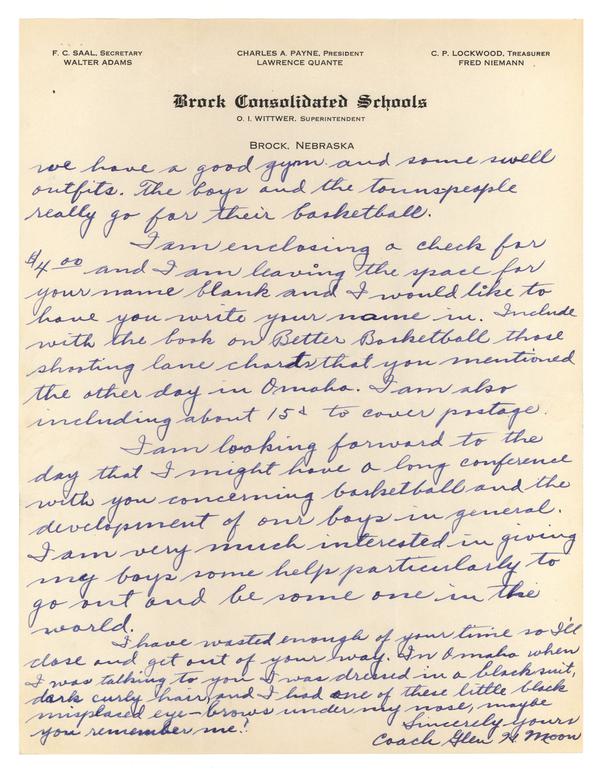 F. C. SAAL, SECRETARY CHARLES A. PAYNE, PRESIDENT C. P. LOCKWOOD, TREASURER
WALTER ADAMS LAWRENCE QUANTE FRED NIEMANN
Brock Consolidated Schools
O. I. WITTWER, SUPERINTENDENT
BROCK, NEBRASKA
we have a good gym and some swell
outfits. The boys and the townspeople
really go for their basketball.
I am enclosing a check for
$4.00 and I am leaving the space for
your name blank and I would like to
have you write your name in. Include
with the book on Better Basketball those
shooting lane charts that you mentioned
the other day in Omaha. I am also
including about 15¢ to cover postage.
I am looking forward to the
day that I might have a long conference
with you concerning basketball and the
development of our boys in general.
I am very much interested in giving
my boys some help particularly to
go out and be some one in the
world.
I have wasted enough of your time so I'll
close and get out of your way. In Omaha when
I was talking to you I was dressed in a black suit,
dark curly hair, and I had one of these little black
misplaced eye-brows under my nose, maybe
you remember me!
Sincerely yours
Coach Glen H. Moon